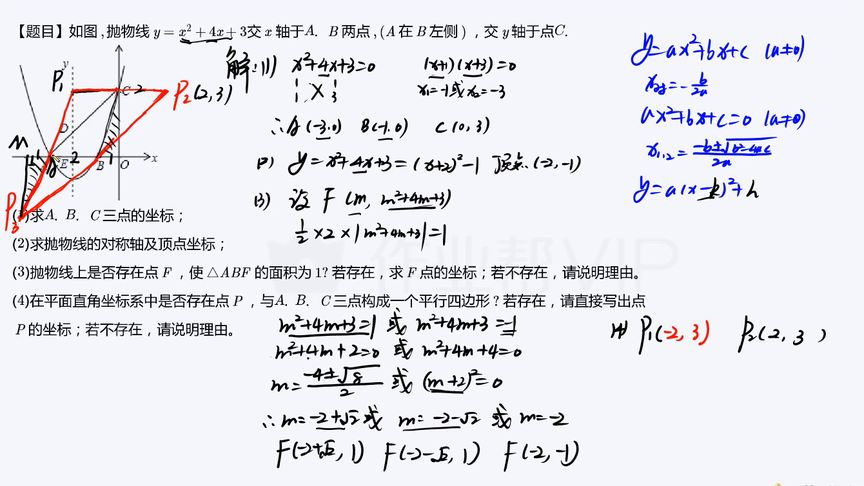 【题目】如图,抛物线 y=x²+4x+3交 x 轴于A、B两点,(A 在 B左侧),交 y轴于点C.
(1)求A、B、C三点的坐标;
(2)求抛物线的对称轴及顶点坐标;
(3)抛物线上是否存在点 F,使△ABF的面积为1?若存在,求F点的坐标;若不存在,请说明理由。
(4)在平面直角坐标系中是否存在点 P,与A、B、C三点构成一个平行四边形?若存在,请直接写出点
P的坐标;若不存在,请说明理由。
y
P₁
C 2
P₂(2,3)
D
M
1
A
E
2
B
1
O
x
P₃
解:(1) x²+4x+3=0 (x+1)(x+3)=0
1 1
1 3
x₁=-1或x₂=-3
∴A(-3,0) B(-1,0) C(0,3)
(2) y=x²+4x+3=(x+2)²-1 顶点(-2,-1)
(3) 设F(m, m²+4m+3)
½×2×|m²+4m+3|=1
m²+4m+3=1 或 m²+4m+3=-1
m²+4m+2=0 或 m²+4m+4=0
m=(-4±√8)/2 或 (m+2)²=0
∴m=-2+√2或 m=-2-√2 或 m=-2
F(-2+√2,1) F(-2-√2,1) F(-2,-1)
y=ax²+bx+c (a≠0)
=-b/2a
ax²+bx+c=0 (a≠0)
x₁,₂=(-b±√b²-4ac)/2a
y=a(x-h)²+k
(4) P₁(-2,3) P₂(2,3)
作业帮VIP